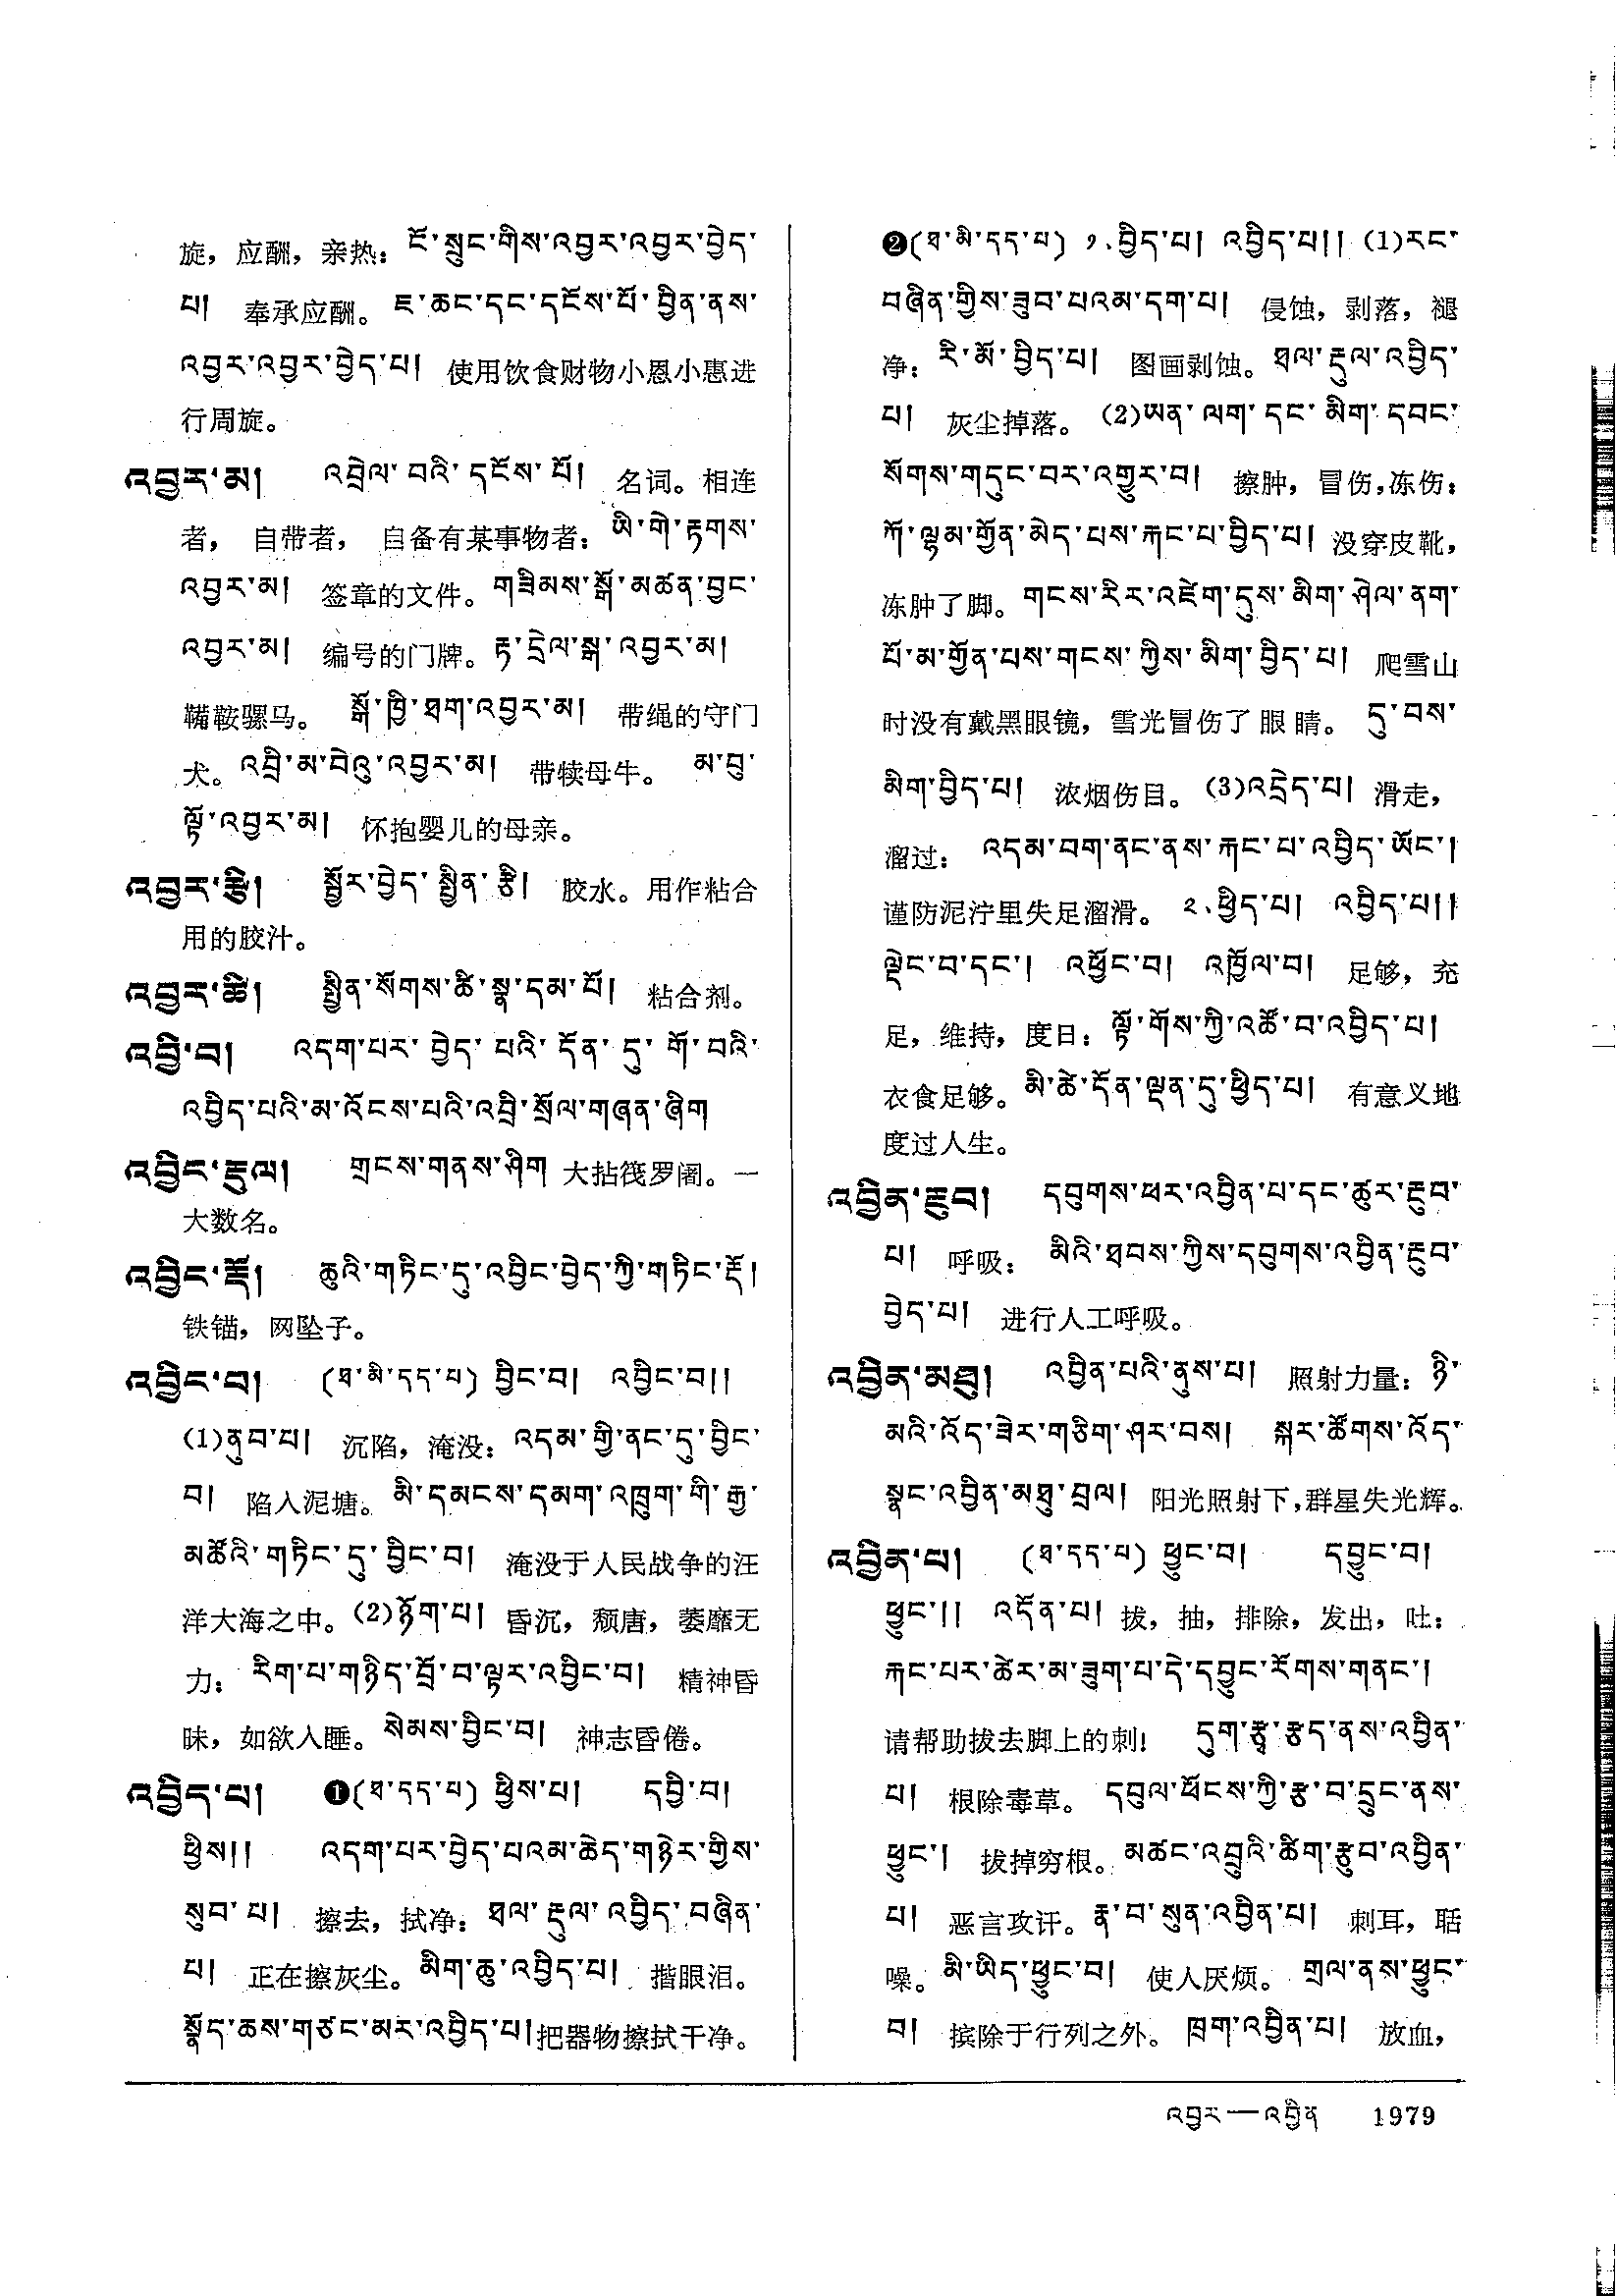 旋，应酬，亲热：ངོ་སྲུང་གིས་འབྱར་འབྱར་བྱེད་
པ།　奉承应酬。ཇ་ཆང་དང་དངོས་པོ་བྱིན་ནས་
འབྱར་འབྱར་བྱེད་པ།　使用饮食财物小恩小惠进
行周旋。
འབྱར་མ།　འབྲེལ་བའི་དངོས་པོ།　名词。相连
者，自带者，自备有某事物者：ཡི་གེ་རྟགས་
འབྱར་མ།　签章的文件。གཟིམས་སྒོ་མཚན་བྱང་
འབྱར་མ།　编号的门牌。རྟ་དྲེལ་སྒ་འབྱར་མ།
鞴鞍骡马。　སྒོ་ཁྱི་ཐག་འབྱར་མ།　带绳的守门
犬。འབྲི་མ་བེའུ་འབྱར་མ།　带犊母牛。　མ་བུ་
ལྟོ་འབྱར་མ།　怀抱婴儿的母亲。
འབྱར་རྩི།　སྦྱོར་བྱེད་སྤྱིན་རྩི།　胶水。用作粘合
用的胶汁。
འབྱར་ཚི།　སྤྱིན་སོགས་ཚི་སྣ་དམ་པོ།　粘合剂。
འབྱི་བ།　འདག་པར་བྱེད་པའི་དོན་དུ་གོ་བའི་
འབྱིད་པའི་མ་འོངས་པའི་འབྲི་སྲོལ་གཞན་ཞིག
འབྱིང་རྡུལ།　གྲངས་གནས་ཤིག 大拈筏罗阇。一
大数名。
འབྱིང་རྡོ།　ཆུའི་གཏིང་དུ་འབྱིང་བྱེད་ཀྱི་གཏིང་རྡོ།
铁锚，网坠子。
འབྱིང་བ།　(ཐ་མི་དད་པ) བྱིང་བ།　འབྱིང་བ།།
(1)ནུབ་པ།　沉陷，淹没：འདམ་གྱི་ནང་དུ་བྱིང་
བ།　陷入泥塘。མི་དམངས་དམག་འཁྲུག་གི་རྒྱ་
མཚོའི་གཏིང་དུ་བྱིང་བ།　淹没于人民战争的汪
洋大海之中。(2)ཉོག་པ།　昏沉，颓唐，萎靡无
力：　རིག་པ་གཉིད་བྲོ་བ་ལྟར་འབྱིང་བ།　精神昏
昧，如欲入睡。སེམས་བྱིང་བ།　神志昏倦。
འབྱིད་པ།　❶(ཐ་དད་པ) ཕྱིས་པ།　དབྱི་བ།
ཕྱིས།།　འདག་པར་བྱེད་པའམ་ཆེད་གཉེར་གྱིས་
སུབ་པ།　擦去，拭净：ཐལ་རྡུལ་འབྱིད་བཞིན་
པ།　正在擦灰尘。མིག་ཆུ་འབྱིད་པ།　揩眼泪。
སྣོད་ཆས་གཙང་མར་འབྱིད་པ།把器物擦拭干净。
❷(ཐ་མི་དད་པ) ༡.བྱིད་པ།　འབྱིད་པ།། (1)རང་
བཞིན་གྱིས་ཟུབ་པའམ་དག་པ།　侵蚀，剥落，褪
净：རི་མོ་བྱིད་པ།　图画剥蚀。ཐལ་རྡུལ་འབྱིད་
པ།　灰尘掉落。　(2)ཡན་ལག་དང་མིག་དབང་
སོགས་གདུང་བར་འགྱུར་བ།　擦肿，冒伤，冻伤：
ཀོ་ལྷམ་གྱོན་མེད་པས་རྐང་པ་བྱིད་པ།　没穿皮靴，
冻肿了脚。གངས་རིར་འཛེག་དུས་མིག་ཤེལ་ནག་
པོ་མ་གྱོན་པས་གངས་ཀྱིས་མིག་བྱིད་པ།　爬雪山
时没有戴黑眼镜，雪光冒伤了眼睛。　དུ་བས་
མིག་བྱིད་པ།　浓烟伤目。(3)འདྲེད་པ།　滑走，
溜过：　འདམ་བག་ནང་ནས་རྐང་པ་འབྱིད་ཡོང་།
谨防泥泞里失足溜滑。　༢.ཕྱིད་པ།　འབྱིད་པ།།
ལྡེང་བ་དང་།　འཕྱོང་བ།　འཁྱོལ་བ།　足够，充
足，维持，度日：ལྟོ་གོས་ཀྱི་འཚོ་བ་འབྱིད་པ།
衣食足够。མི་ཚེ་དོན་ལྡན་དུ་ཕྱིད་པ།　有意义地
度过人生。
འབྱིན་རྔུབ།　དབུགས་ཕར་འབྱིན་པ་དང་ཚུར་རྔུབ་
པ།　呼吸：　མིའི་ཐབས་ཀྱིས་དབུགས་འབྱིན་རྔུབ་
བྱེད་པ།　进行人工呼吸。
འབྱིན་མཐུ།　འབྱིན་པའི་ནུས་པ།　照射力量：ཉི་
མའི་འོད་ཟེར་གཅིག་ཤར་བས།　སྐར་ཚོགས་འོད་
སྣང་འབྱིན་མཐུ་བྲལ།　阳光照射下，群星失光辉。
འབྱིན་པ།　(ཐ་དད་པ) ཕྱུང་བ།　དབྱུང་བ།
ཕྱུང་།།　འདོན་པ།　拔，抽，排除，发出，吐：
རྐང་པར་ཚེར་མ་ཟུག་པ་དེ་དབྱུང་རོགས་གནང་།
请帮助拔去脚上的刺!　དུག་རྩྭ་རྩད་ནས་འབྱིན་
པ།　根除毒草。　དབུལ་ཕོངས་ཀྱི་རྩ་བ་དྲུང་ནས་
ཕྱུང་།　拔掉穷根。མཚང་འབྲུའི་ཚིག་རྩུབ་འབྱིན་
པ།　恶言攻讦。རྣ་བ་སུན་འབྱིན་པ།　刺耳，聒
噪。མི་ཡིད་ཕྱུང་བ།　使人厌烦。　གྲལ་ནས་ཕྱུང་
བ།　摈除于行列之外。ཁྲག་འབྱིན་པ།　放血，
འབྱར—འབྱིན　1979